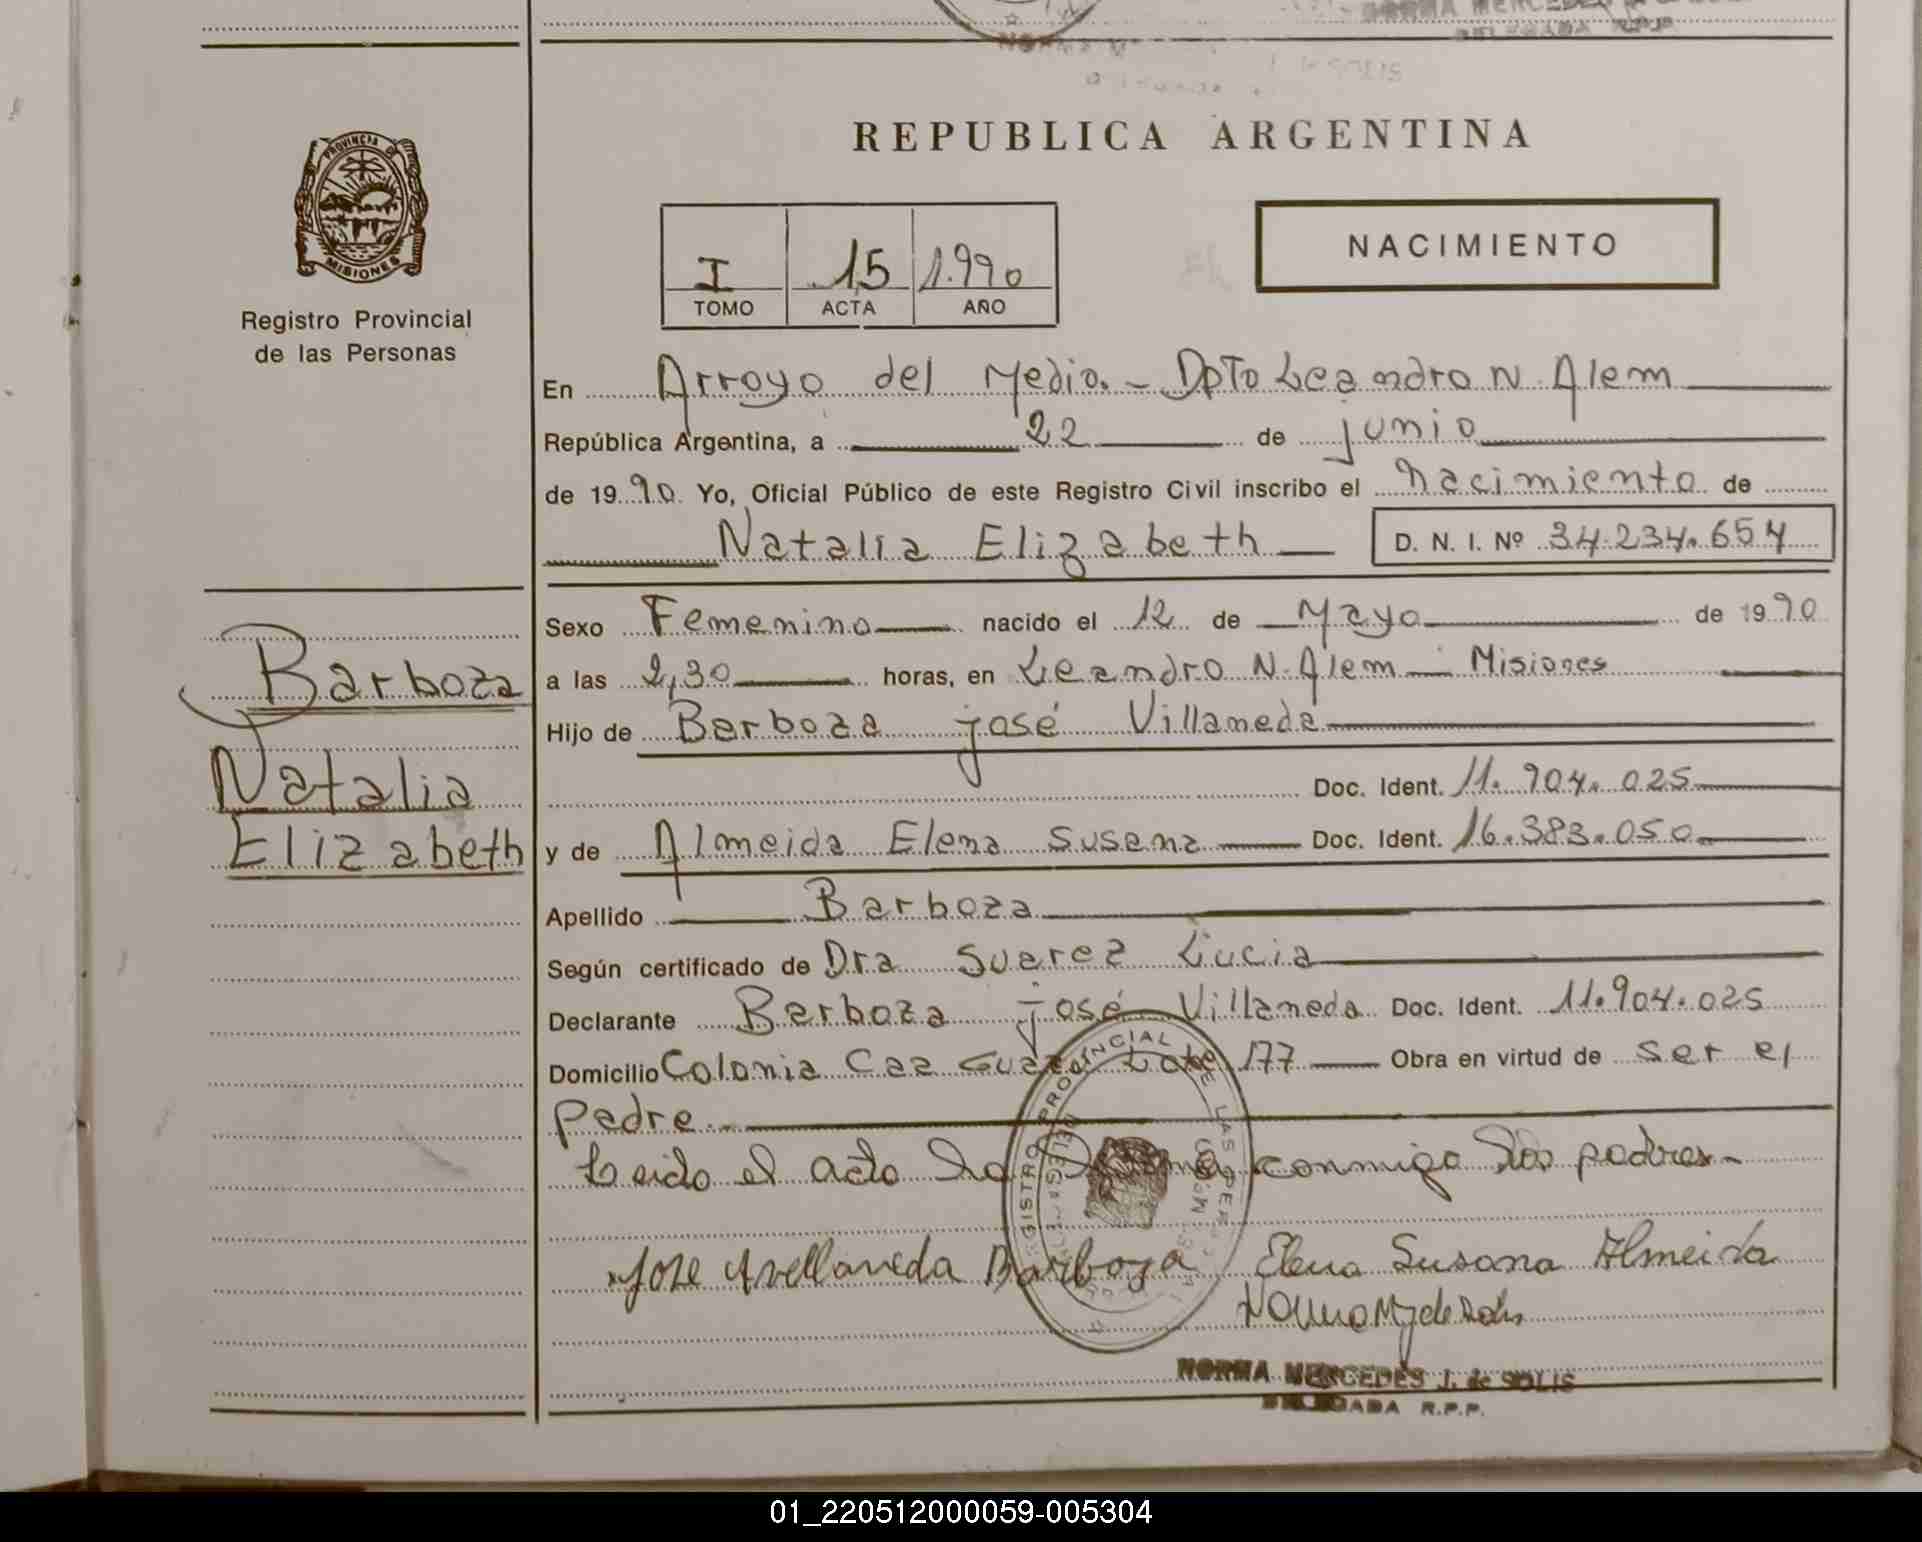 NORMA MERCEDES
DELEGADA R.P.P.
REPUBLICA ARGENTINA
PROVINCIA D
MISIONES
Registro Provincial
de las Personas
I 15 1.990
TOMO ACTA AÑO
NACIMIENTO
En Arroyo del Medio. - Dpto Leandro N. Alem
República Argentina, a 22 de junio
de 1990 Yo, Oficial Público de este Registro Civil inscribo el Nacimiento de
Natalia Elizabeth D. N. I. Nº 34.234.654
Barboza
Natalia
Elizabeth
Sexo Femenino nacido el 12 de Mayo de 1990
a las 2,30 horas, en Leandro N. Alem - Misiones
Hijo de Barboza josé Villaneda
Doc. Ident. 11.904.025
y de Almeida Elena Susana Doc. Ident. 16.383.050
Apellido Barboza
Según certificado de Dra Suarez Lucia
Declarante Barboza josé Villaneda Doc. Ident. 11.904.025
Domicilio Colonia Caa Lote 177 Obra en virtud de ser el
padre.
Leido el acto conmigo los padres-
Jose Avellaneda Barboza Elena Susana Almeida
REGISTRO PROVINCIAL DE LAS PER
NORMA MERCEDES J. de SOLIS
DELEGADA R.P.P.
01_220512000059-005304